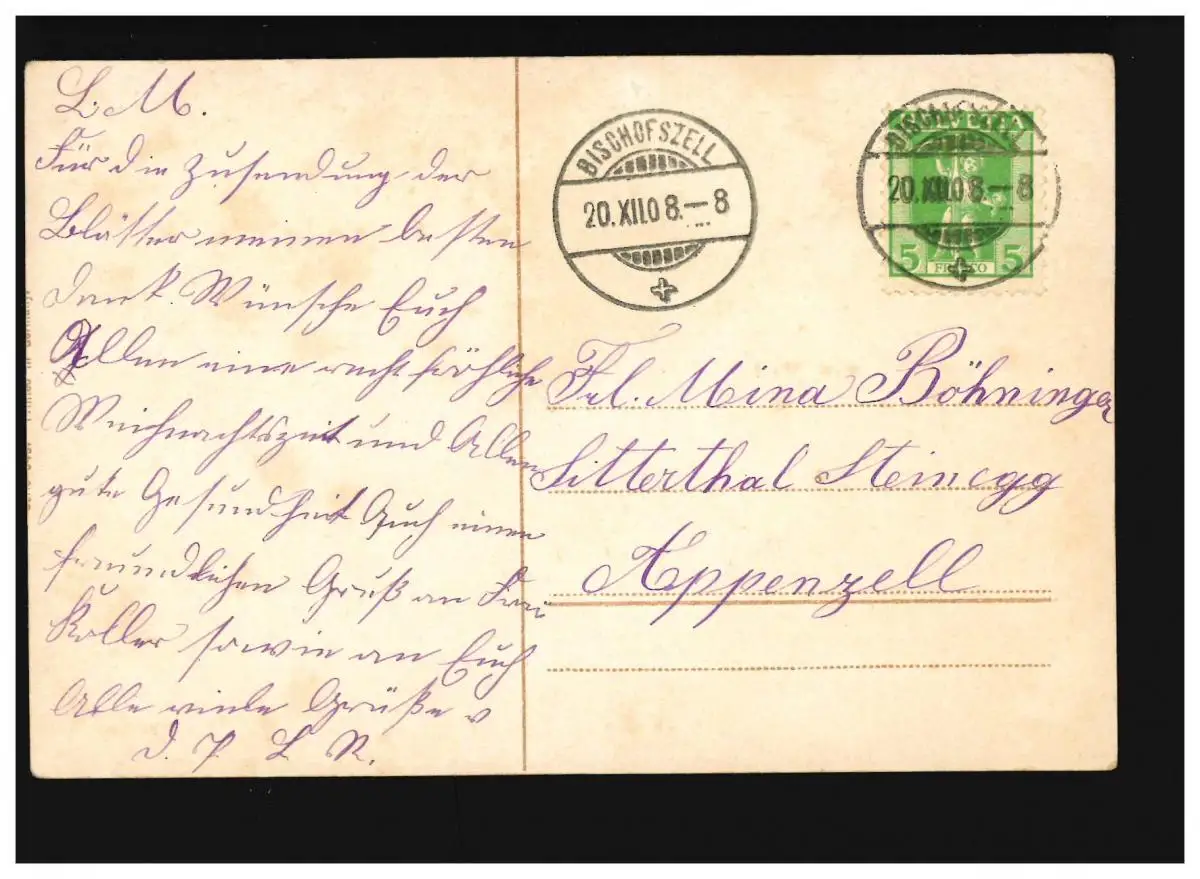 L. M.
Für die Zusendung der
Blätter meinen besten
Dank. Wünsche Euch
Allen eine recht fröhliche
Weihnachtszeit und Allen
gute Gesundheit Auch einen
freundlichen Gruß an Frau
Koller sowie an Euch
Alle viele Grüße v
d. L. R.
BISCHOFSZELL
20.XII.08.–8
BISCHOFSZELL
20.XII.08.–8
HELVETIA
5 5
FRANCO
Frl. Mina Böhninger
Sitterthal Steinegg
Appenzell